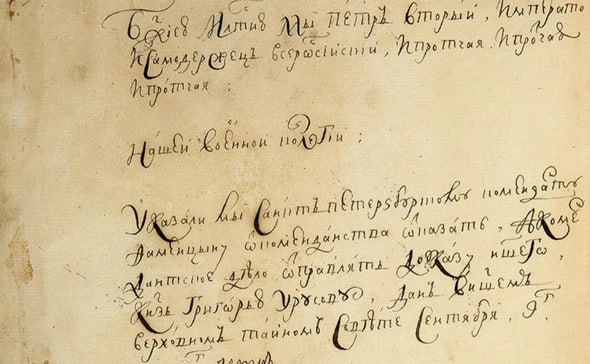 Бжїею Млтию Мы Пётръ Вторый, Императо
И Самодержецъ всеросїискїй, И протчая И протчая
И протчая :
Нашей военной колегїи :
Указали мы Санктъ петерзбургскому коменданту
Фаминцыну ѿ коменданства ѿказать, А коме
дантское дѣло ѿправлять до указу ншего,
Кнзь Григорью Урусову, Данъ в ншемъ
верховномъ тайномъ Совѣте Сентября, 9 г